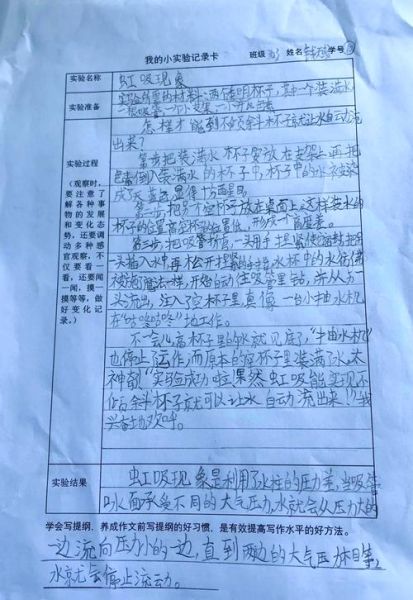 我的小实验记录卡 班级 姓名 学号
实验名称 虹吸现象
实验准备 实验所需的材料:两个透明杯子,其中一个装满水,
一根吸管、一个小支架
实验过程
(观察时,
要注意了
解各种事
物的发展
和变化态
势,还要调
动多种感
官观察,不
仅要看一
看,还要闻
一闻,摸一
摸等等,做
好变化记
录。)
怎样才能做到不倾斜杯子就让水自动流
出来?
第一步把装满水的杯子要放在支架上面,把
色素倒入装满水的杯子中,杯子中的水被染
成了蓝色显得十分醒目。
第二步把另个空杯子放在桌面上这样装水的
杯子的位置高空杯位置低,形成一个高度差。
第三步,把吸管折弯,一头用手捏紧使它密封,把另
一头插入水中,再松开捏紧的手,持水杯中的水仿佛
被施了魔法一样,开始自动往吸管里钻,并从另一
头流出,注入了空杯子里,真像一台小抽水机
在“咕咚咕咚”地工作。
不一会儿高杯子里的水就见底了,“抽水机”
也停止了运作,而原本的空杯子里装满了水,太
神奇啦“实验成功啦!果然虹吸能实现不
倾斜杯子就可以让水自动流出来!”我
兴奋地欢呼。
实验结果 虹吸现象是利用了水柱的压力差,当吸管
口水面承受不同的大气压力,水就会从压力大的
学会写提纲,养成作文前写提纲的好习惯,是有效提高写作水平的好方法。
一边流向压力小的一边,直到两边的大气压相等,
水就会停止流动。